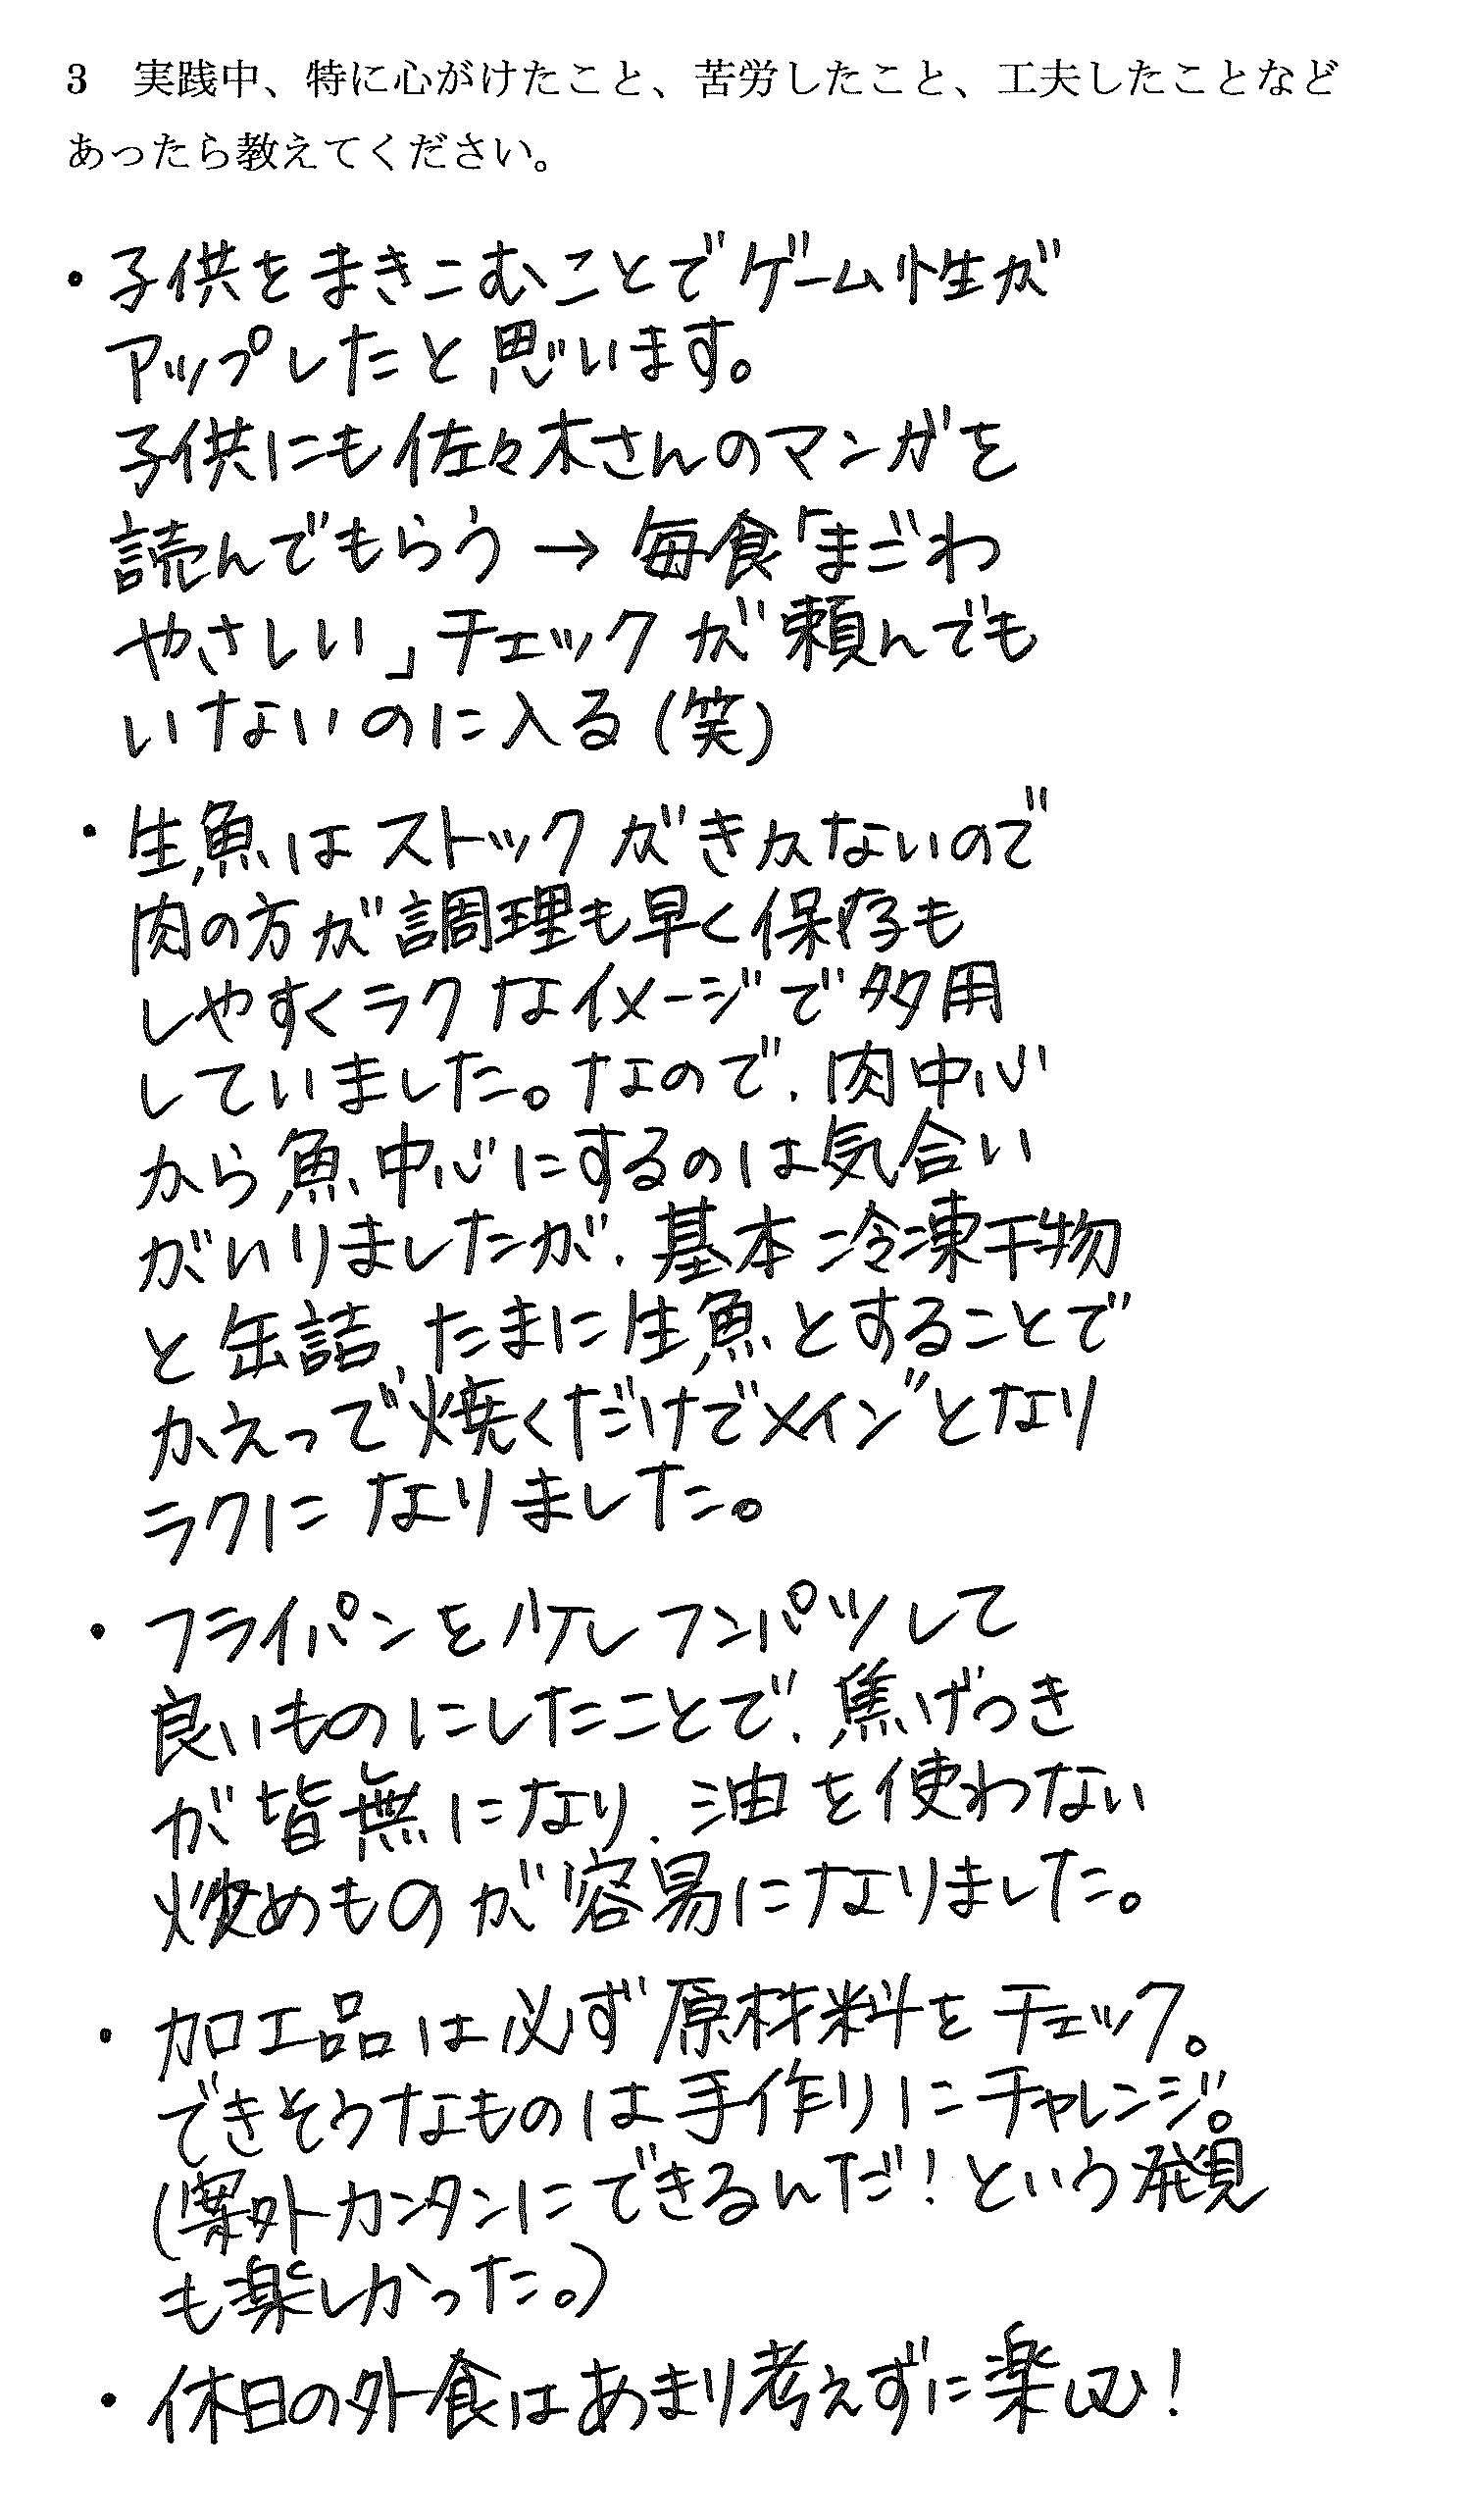 3　実践中、特に心がけたこと、苦労したこと、工夫したことなど
あったら教えてください。
・子供をまきこむことでゲーム性が
アップしたと思います。
子供にも佐々木さんのマンガを
読んでもらう → 毎食「まごわ
やさしい」チェックが頼んでも
いないのに入る(笑)
・生魚はストックがきかないので
肉の方が調理も早く保存も
しやすくラクなイメージで多用
していました。なので、肉中心
から魚中心にするのは気合い
がいりましたが、基本冷凍干物
と缶詰、たまに生魚とすることで
かえって"焼くだけでメイン"となり
ラクになりました。
・フライパンを少しフンパツして
良いものにしたことで、焦げつき
が皆無になり、油を使わない
炒めものが容易になりました。
・加工品は必ず原材料をチェック。
できそうなものは手作りにチャレンジ。
(案外カンタンにできるんだ！という発見
も楽しかった。)
・休日の外食はあまり考えずに楽しむ！